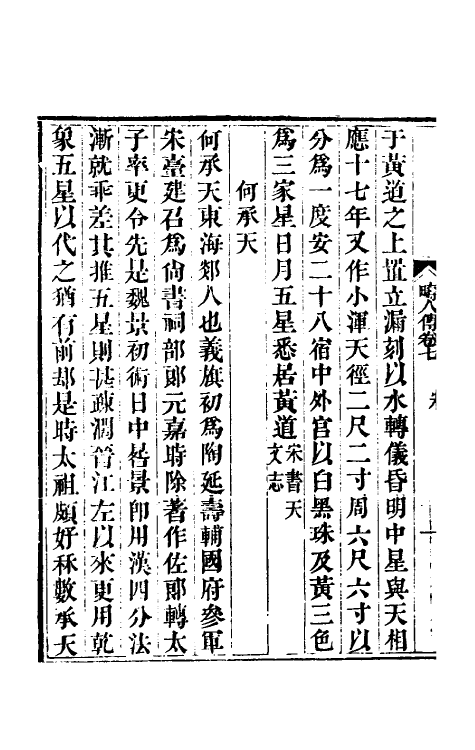 疇人傳卷七
于黃道之上置立漏刻以水轉儀昏明中星與天相
應十七年又作小渾天徑二尺二寸周六尺六寸以
分爲一度安二十八宿中外官以白黑珠及黃三色
爲三家星日月五星悉居黃道宋書天文志
何承天
何承天東海郯人也義旗初爲陶延壽輔國府參軍
宋臺建召爲尙書祠部郞元嘉時除著作佐郞轉太
子率更令先是魏景初術日中晷景卽用漢四分法
漸就乖差其推五星則甚疎濶晉江左以來更用乾
象五星以代之猶有前却是時太祖頗好秝數承天